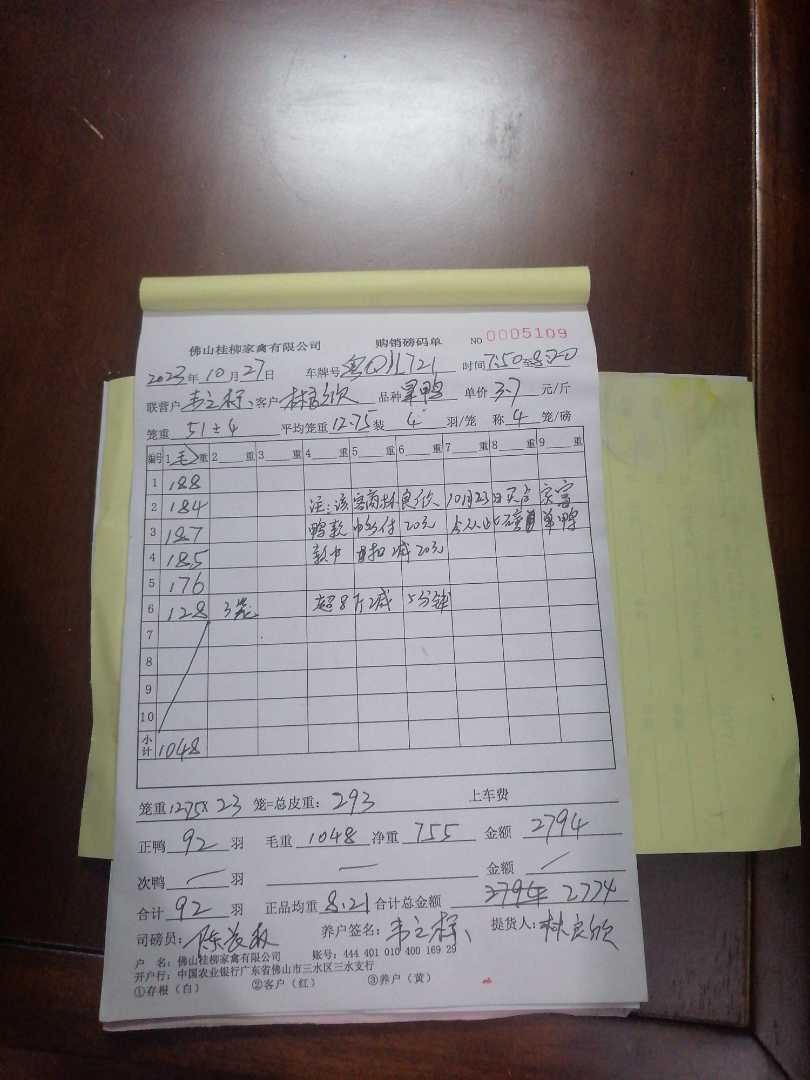 佛山桂柳家禽有限公司 购销磅码单 NO 0005109
2023年10月27日 车牌号 粤Q11721 时间7:50至8:20
联营户 韦立标 客户 林良欣 品种 单价 3.7 元/斤
笼重 51÷4 平均笼重12.75装 4 羽/笼 称 4 笼/磅
编号 1 毛 重 2 重 3 重 4 重 5 重 6 重 7 重 8 重 9 重
1 188
2 184 注:该客商林良欣10月23日买
3 187 鸭款中少付20元
4 185 款中扣减20元
5 176
6 128 3笼 超8斤减5分钱
7
8
9
10
小计 1048
笼重12.75× 23 笼=总皮重: 293 上车费
正鸭 92 羽 毛重 1048 净重 755 金额 2794
次鸭 / 羽 — 金额 /
合计 92 羽 正品均重 8.21 合计总金额 2794 2774
司磅员: 养户签名: 韦立标 提货人: 林良欣
户 名: 佛山桂柳家禽有限公司 账号: 444 401 010 400 169 29
开户行: 中国农业银行广东省佛山市三水区三水支行
①存根(白) ②客户(红) ③养户(黄)